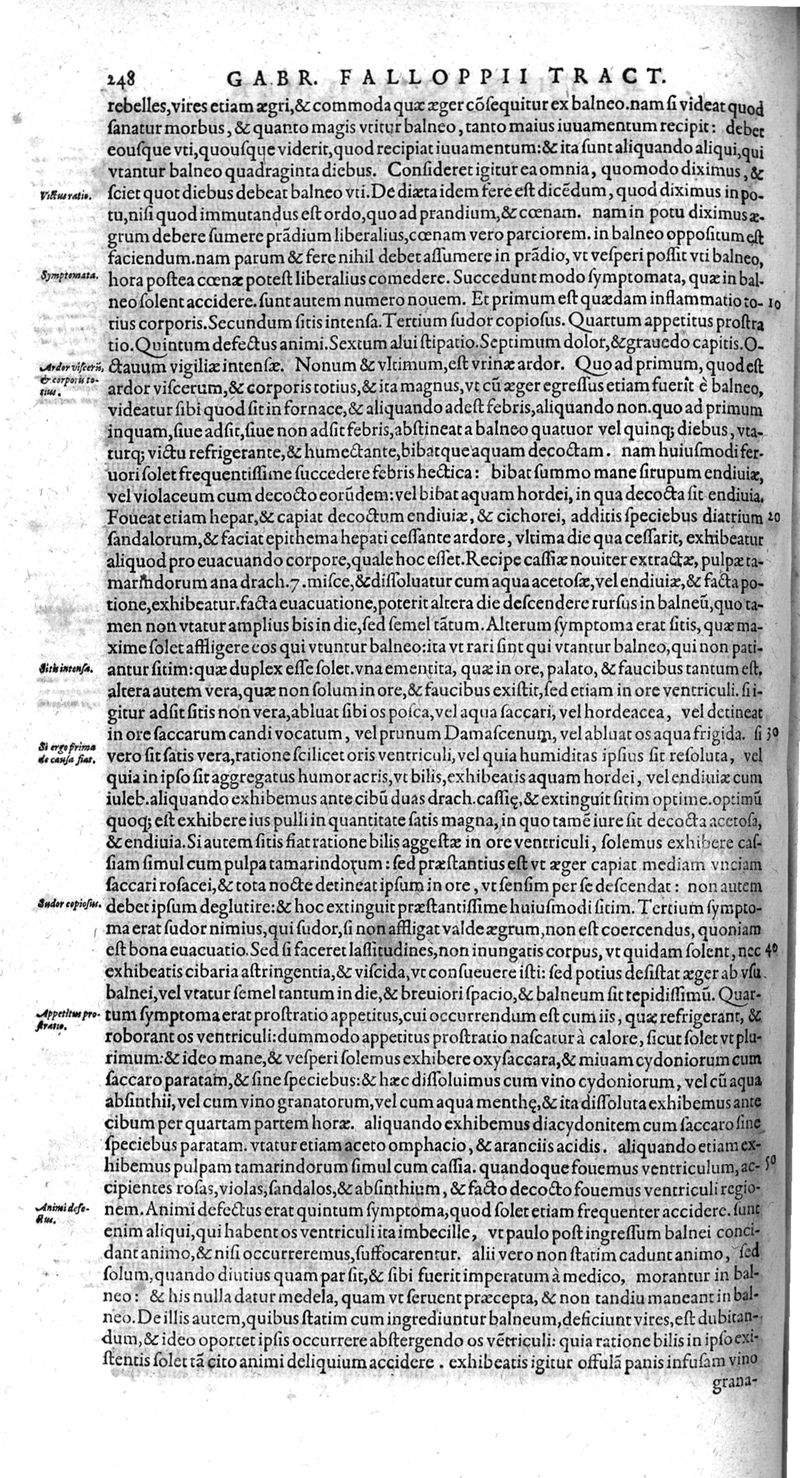 248 GABR. FALLOPPII TRACT.
rebelles,vires etiam ægri,&commoda quæ æger cõſequitur ex balneo.nam ſi videat quod
ſanatur morbus, & quanto magis vtitur balneo, tanto maius iuuamentum recipit: debet
eouſque vti,quouſque viderit,quod recipiat iuuamentum:& ita ſunt aliquando aliqui,qui
vtantur balneo quadraginta diebus. Conſideret igitur ea omnia, quomodo diximus, &
Victus ratio.
ſciet quot diebus debeat balneo vti.De diæta idem fere eſt dicẽdum, quod diximus in po-
tu,niſi quod immutandus eſt ordo,quo ad prandium,& cœnam. nam in potu diximus æ-
grum debere ſumere prãdium liberalius,cœnam vero parciorem. in balneo oppoſitum eſt
faciendum.nam parum & fere nihil debet aſſumere in prãdio, vt veſperi poſſit vti balneo,
Symptomata.
hora poſtea cœnæ poteſt liberalius comedere. Succedunt modo ſymptomata, quæ in bal-
neo ſolent accidere. ſunt autem numero nouem. Et primum eſt quædam inflammatio to- 10
tius corporis.Secundum ſitis intenſa.Tertium ſudor copioſus. Quartum appetitus proſtra
tio.Quintum defectus animi.Sextum alui ſtipatio.Septimum dolor,& grauedo capitis.O-
Ardor viſcerũ,
& corporis to-
tius.
ctauum vigiliæ intenſæ. Nonum & vltimum,eſt vrinæ ardor. Quo ad primum, quod eſt
ardor viſcerum,& corporis totius,& ita magnus,vt cũ æger egreſſus etiam fuerit è balneo,
videatur ſibi quod ſit in fornace,& aliquando adeſt febris,aliquando non.quo ad primum
inquam,ſiue adſit,ſiue non adſit febris,abſtineat a balneo quatuor vel quinq; diebus, vta-
turq; victu refrigerante,& humectante,bibatque aquam decoctam. nam huiuſmodi fer-
uori ſolet frequentiſſime ſuccedere febris hectica: bibat ſummo mane ſirupum endiuiæ,
vel violaceum cum decocto eorũdem: vel bibat aquam hordei, in qua decocta ſit endiuia.
Foueat etiam hepar,& capiat decoctum endiuiæ, & cichorei, additis ſpeciebus diatrium 20
ſandalorum,& faciat epithema hepati ceſſante ardore, vltima die qua ceſſarit, exhibeatur
aliquod pro euacuando corpore,quale hoc eſſet.Recipe caſſiæ nouiter extractæ, pulpæ ta-
marindorum ana drach.7.miſce,&diſſoluatur cum aqua acetoſæ,vel endiuiæ,& facta po-
tione,exhibeatur.facta euacuatione,poterit altera die deſcendere rurſus in balneũ,quo ta-
men non vtatur amplius bis in die,ſed ſemel tãtum.Alterum ſymptoma erat ſitis, quæ ma-
xime ſolet affligere eos qui vtuntur balneo:ita vt rari ſint qui vtantur balneo,qui non pati-
Sitis intenſa.
antur ſitim:quæ duplex eſſe ſolet.vna ementita, quæ in ore, palato, & faucibus tantum eſt,
altera autem vera,quæ non ſolum in ore,& faucibus exiſtit,ſed etiam in ore ventriculi. ſi i-
gitur adſit ſitis non vera,abluat ſibi os poſca,vel aqua ſaccari, vel hordeacea, vel detineat
in ore ſaccarum candi vocatum, vel prunum Damaſcenum, vel abluat os aqua frigida. ſi 30
Si ergo prima
de cauſa fiat.
vero ſit ſatis vera,ratione ſcilicet oris ventriculi,vel quia humiditas ipſius ſit reſoluta, vel
quia in ipſo ſit aggregatus humor acris,vt bilis,exhibeatis aquam hordei, vel endiuiæ cum
iuleb.aliquando exhibemus ante cibũ duas drach.caſſię,& extinguit ſitim optime.optimũ
quoq; eſt exhibere ius pulli in quantitate ſatis magna, in quo tamẽ iure ſit decocta acetoſa,
& endiuia.Si autem ſitis fiat ratione bilis aggeſtæ in ore ventriculi, ſolemus exhibere caſ-
ſiam ſimul cum pulpa tamarindorum: ſed præſtantius eſt vt æger capiat mediam vnciam
ſaccari roſacei,& tota nocte detineat ipſum in ore, vt ſenſim per ſe deſcendat: non autem
Sudor copioſus.
debet ipſum deglutire:& hoc extinguit præſtantiſſime huiuſmodi ſitim. Tertium ſympto-
ma erat ſudor nimius,qui ſudor,ſi non affligat valde ægrum,non eſt coercendus, quoniam
eſt bona euacuatio.Sed ſi faceret laſſitudines,non inungatis corpus, vt quidam ſolent, nec 40
exhibeatis cibaria aſtringentia,& viſcida,vt conſueuere iſti: ſed potius deſiſtat æger ab vſu
balnei,vel vtatur ſemel tantum in die,& breuiori ſpacio,& balneum ſit tepidiſſimũ. Quar-
Appetitus pro-
ſtratio.
tum ſymptoma erat proſtratio appetitus,cui occurrendum eſt cum iis, quæ refrigerant, &
roborant os ventriculi:dummodo appetitus proſtratio naſcatur à calore, ſicut ſolet vt plu-
rimum:& ideo mane,& veſperi ſolemus exhibere oxyſaccara,& miuam cydoniorum cum
ſaccaro paratam,& ſine ſpeciebus:& hæc diſſoluimus cum vino cydoniorum, vel cũ aqua
abſinthii,vel cum vino granatorum,vel cum aqua menthę,& ita diſſoluta exhibemus ante
cibum per quartam partem horæ. aliquando exhibemus diacydonitem cum ſaccaro ſine
ſpeciebus paratam. vtatur etiam aceto omphacio, & aranciis acidis. aliquando etiam ex-
hibemus pulpam tamarindorum ſimul cum caſſia. quandoque fouemus ventriculum, ac- 50
cipientes roſas,violas,ſandalos,& abſinthium, & facto decocto fouemus ventriculi regio-
Animi defe-
ctus.
nem. Animi defectus erat quintum ſymptoma,quod ſolet etiam frequenter accidere. ſunt
enim aliqui,qui habent os ventriculi ita imbecille, vt paulo poſt ingreſſum balnei conci-
dant animo,& niſi occurreremus,ſuffocarentur. alii vero non ſtatim cadunt animo, ſed
ſolum,quando diutius quam par ſit,& ſibi fuerit imperatum à medico, morantur in bal-
neo: & his nulla datur medela, quam vt ſeruent præcepta, & non tandiu maneant in bal-
neo.De illis autem,quibus ſtatim cum ingrediuntur balneum,deficiunt vires,eſt dubitan-
dum,& ideo oportet ipſis occurrere abſtergendo os vẽtriculi: quia ratione bilis in ipſo exi-
ſtentis ſolet tã cito animi deliquium accidere. exhibeatis igitur offulã panis infuſam vino
grana-